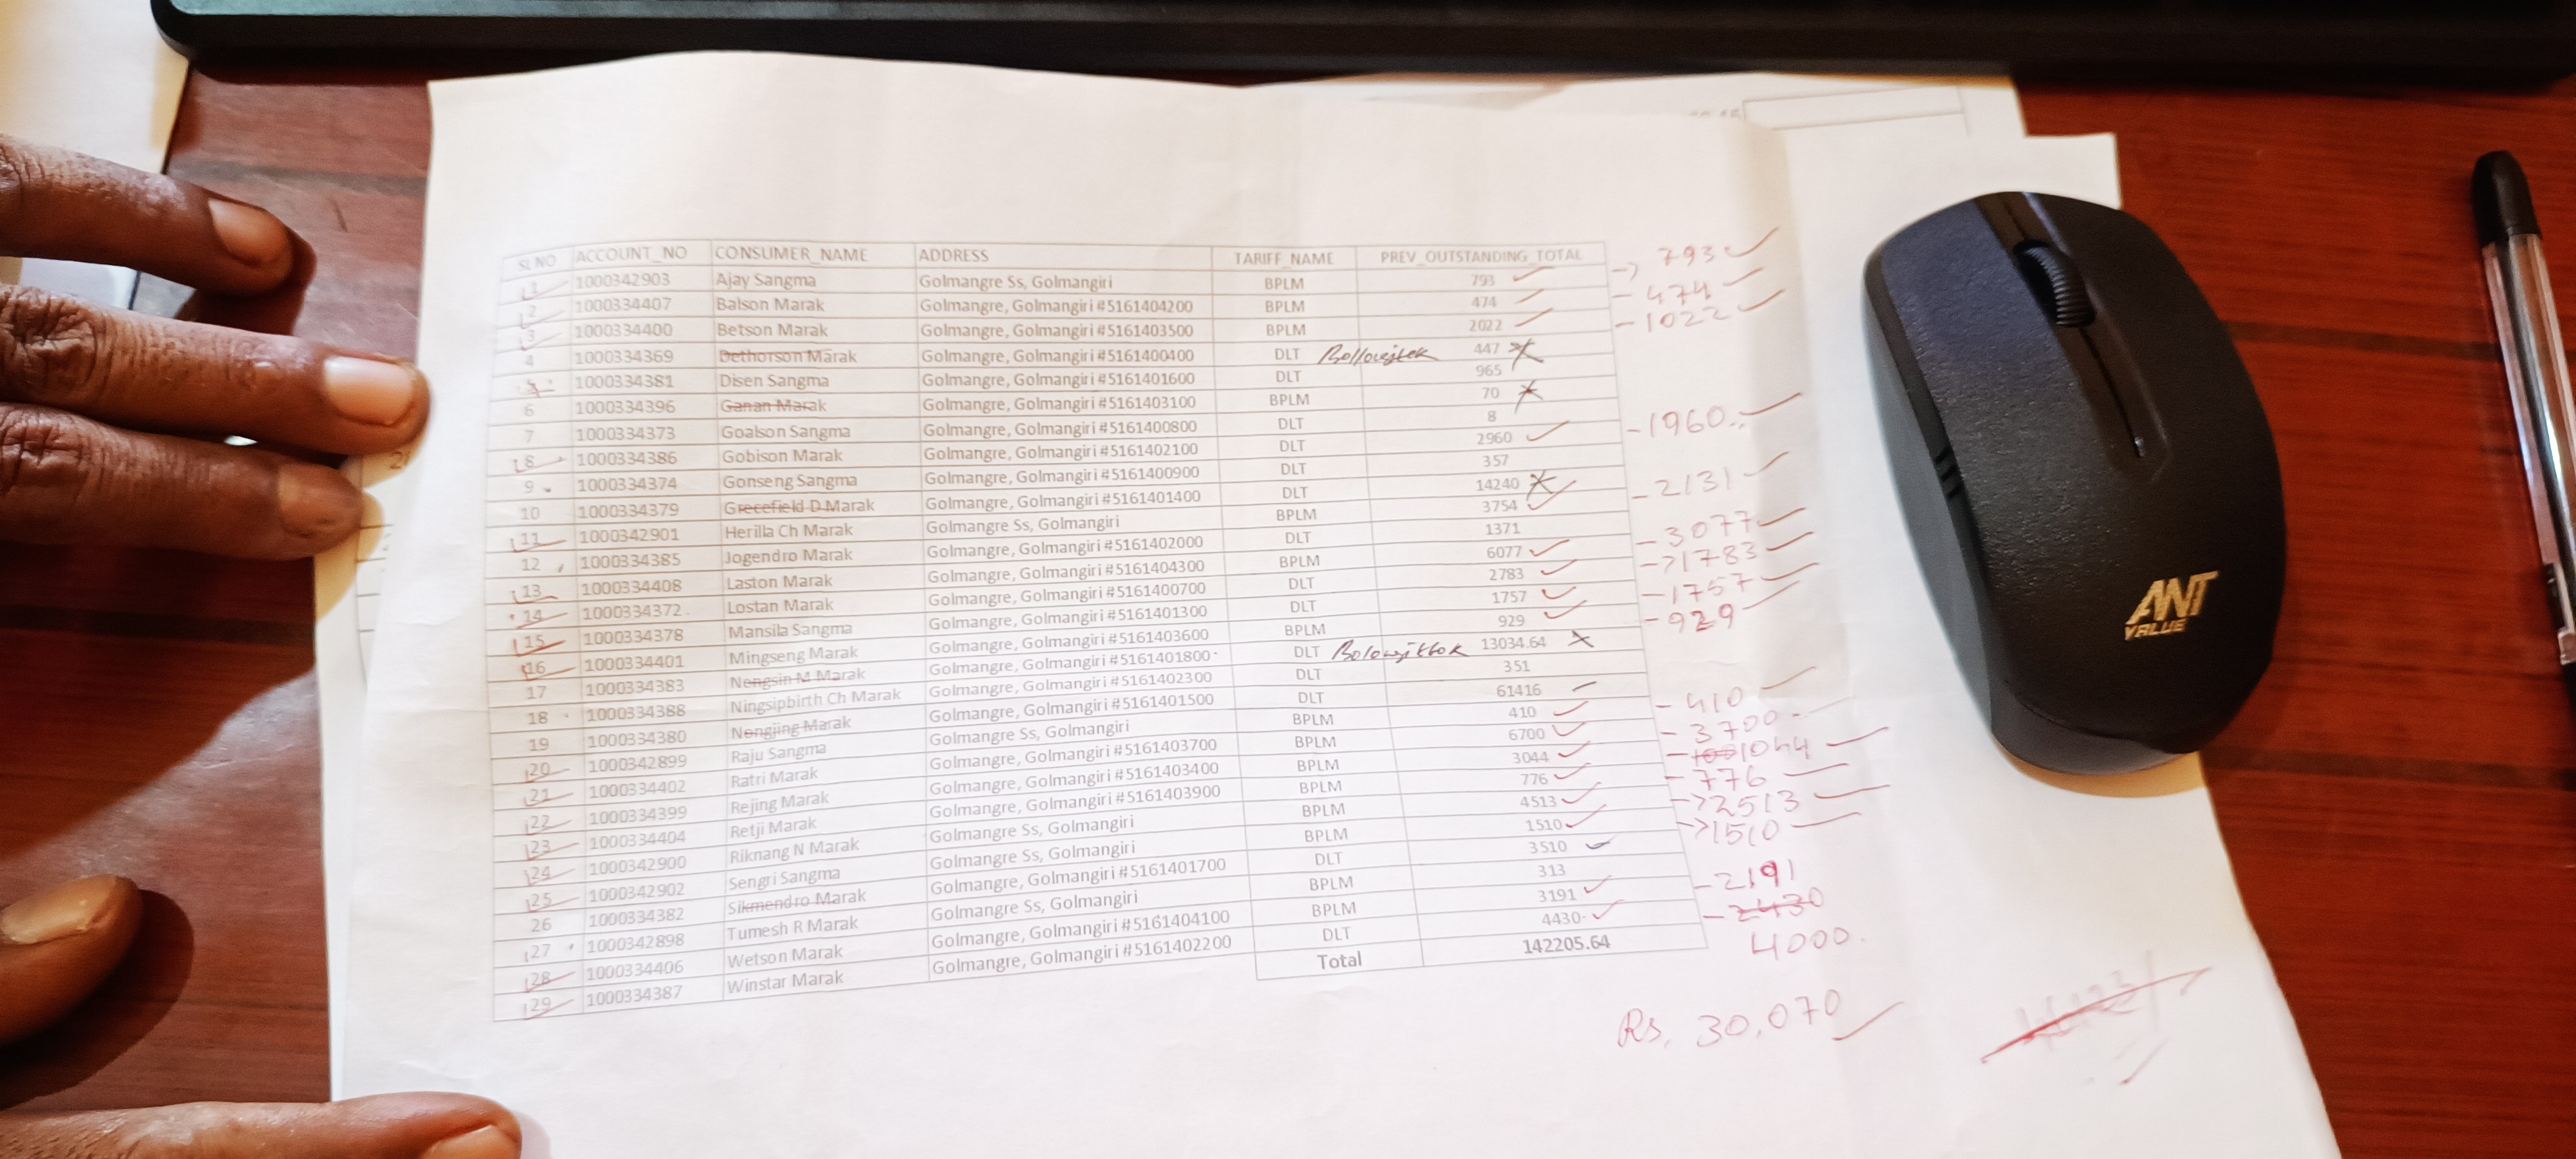 SL NO ACCOUNT_NO CONSUMER_NAME ADDRESS TARIFF_NAME PREV_OUTSTANDING_TOTAL
1 1000342903 Ajay Sangma Golmangre Ss, Golmangiri BPLM 793 -> 793
2 1000334407 Balson Marak Golmangre, Golmangiri #5161404200 BPLM 474 - 474
3 1000334400 Betson Marak Golmangre, Golmangiri #5161403500 BPLM 2022 - 1022
4 1000334369 Dethorson Marak Golmangre, Golmangiri #5161400400 DLT 447
5 1000334381 Disen Sangma Golmangre, Golmangiri #5161401600 DLT 965
6 1000334396 Ganan Marak Golmangre, Golmangiri #5161403100 BPLM 70
7 1000334373 Goalson Sangma Golmangre, Golmangiri #5161400800 DLT 8
8 1000334386 Gobison Marak Golmangre, Golmangiri #5161402100 DLT 2960 - 1960
9 1000334374 Gonseng Sangma Golmangre, Golmangiri #5161400900 DLT 357
10 1000334379 Grecefield D Marak Golmangre, Golmangiri #5161401400 DLT 14240
11 1000342901 Herilla Ch Marak Golmangre Ss, Golmangiri BPLM 3754 - 2131
12 1000334385 Jogendro Marak Golmangre, Golmangiri #5161402000 DLT 1371
13 1000334408 Laston Marak Golmangre, Golmangiri #5161404300 BPLM 6077 - 3077
14 1000334372 Lostan Marak Golmangre, Golmangiri #5161400700 DLT 2783 -> 1783
15 1000334378 Mansila Sangma Golmangre, Golmangiri #5161401300 DLT 1757 - 1757
16 1000334401 Mingseng Marak Golmangre, Golmangiri #5161403600 BPLM 929 - 929
17 1000334383 Nengsin M Marak Golmangre, Golmangiri #5161401800 DLT 13034.64
18 1000334388 Ningsipbirth Ch Marak Golmangre, Golmangiri #5161402300 DLT 351
19 1000334380 Nengjing Marak Golmangre, Golmangiri #5161401500 DLT 61416
20 1000342899 Raju Sangma Golmangre Ss, Golmangiri BPLM 410 - 410
21 1000334402 Ratri Marak Golmangre, Golmangiri #5161403700 BPLM 6700 - 3700
22 1000334399 Rejing Marak Golmangre, Golmangiri #5161403400 BPLM 3044 - 1044
23 1000334404 Retji Marak Golmangre, Golmangiri #5161403900 BPLM 776 - 776
24 1000342900 Riknang N Marak Golmangre Ss, Golmangiri BPLM 4513 -> 2513
25 1000342902 Sengri Sangma Golmangre Ss, Golmangiri BPLM 1510 -> 1510
26 1000334382 Sikmendro Marak Golmangre, Golmangiri #5161401700 DLT 3510
27 1000342898 Tumesh R Marak Golmangre Ss, Golmangiri BPLM 313
28 1000334406 Wetson Marak Golmangre, Golmangiri #5161404100 BPLM 3191 - 2191
29 1000334387 Winstar Marak Golmangre, Golmangiri #5161402200 DLT 4430 - 2430
Total 142205.64 4000
Rs. 30,070
ANT
VALUE